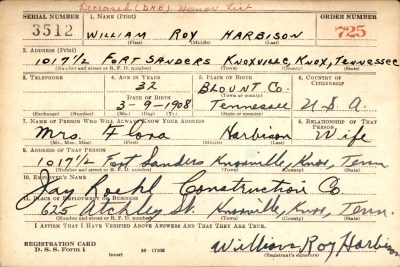 Deceased (DAB) Honor List
SERIAL NUMBER 1. NAME (Print) ORDER NUMBER
3512 WILLIAM ROY HARBISON 725
(First) (Middle) (Last)
2. ADDRESS (Print)
1017½ FORT SANDERS KNOXVILLE, KNOX, TENNESSEE
(Number and street or R. F. D. number) (Town) (County) (State)
3. TELEPHONE 4. AGE IN YEARS 5. PLACE OF BIRTH 6. COUNTRY OF CITIZENSHIP
32 BLOUNT CO.
DATE OF BIRTH (Town or county)
3-9-1908 Tennessee U.S.A.
(Exchange) (Number) (Mo.) (Day) (Yr.) (State or country)
7. NAME OF PERSON WHO WILL ALWAYS KNOW YOUR ADDRESS 8. RELATIONSHIP OF THAT PERSON
Mrs. Flora Harbison Wife
(Mr., Mrs., Miss) (First) (Middle) (Last)
9. ADDRESS OF THAT PERSON
1017½ Fort Sanders Knoxville, Knox, Tenn.
(Number and street or R. F. D. number) (Town) (County) (State)
10. EMPLOYER'S NAME
Jay Roehl Construction Co
11. PLACE OF EMPLOYMENT OR BUSINESS
625 Atchley St. Knoxville, Knox, Tenn.
(Number and street or R. F. D. number) (Town) (County) (State)
I AFFIRM THAT I HAVE VERIFIED ABOVE ANSWERS AND THAT THEY ARE TRUE.
REGISTRATION CARD
D. S. S. Form 1 (over) 16-17105 William Roy Harbison
(Registrant's signature)